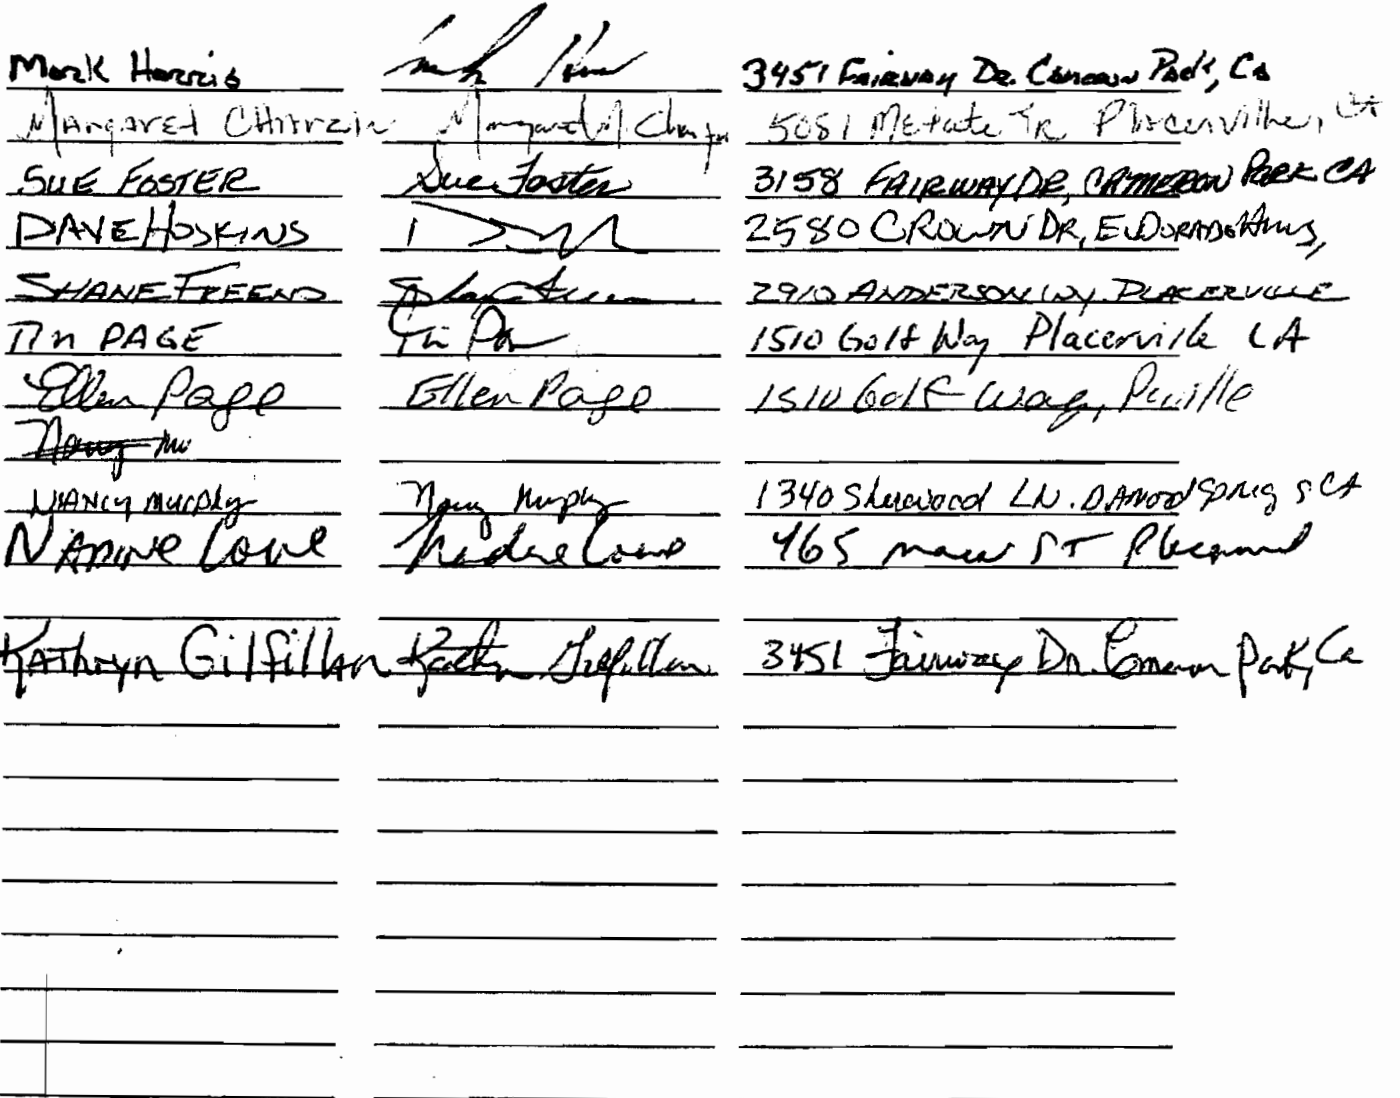 Mark Harris Mark Har 3451 Fairway Dr. Cameron Park, Ca
Margaret Margaret M. 5081 Metate Tr Placerville, CA
SUE FOSTER Sue Foster 3158 FAIRWAY DR, CAMERON PARK CA
DAVE HOSKINS 2580 CROWN DR, EL DORADO HILLS,
SHANE FREEND 2910 ANDERSON WY. PLACERVILLE
Tim PAGE Tim Pa 1510 Golf Way Placerville CA
Ellen Page Ellen Page 1510 Golf Way, Pville
Nancy Mu
NANCY MURPHY Nancy Murphy 1340 Sherwood LN. DAMOND SPRNGS CA
NADINE Lowe Nadine Lowe 465 main ST
KAThryn Gilfillan Kathryn Gilfillan 3451 Fairway Dr. Cameron Park, Ca